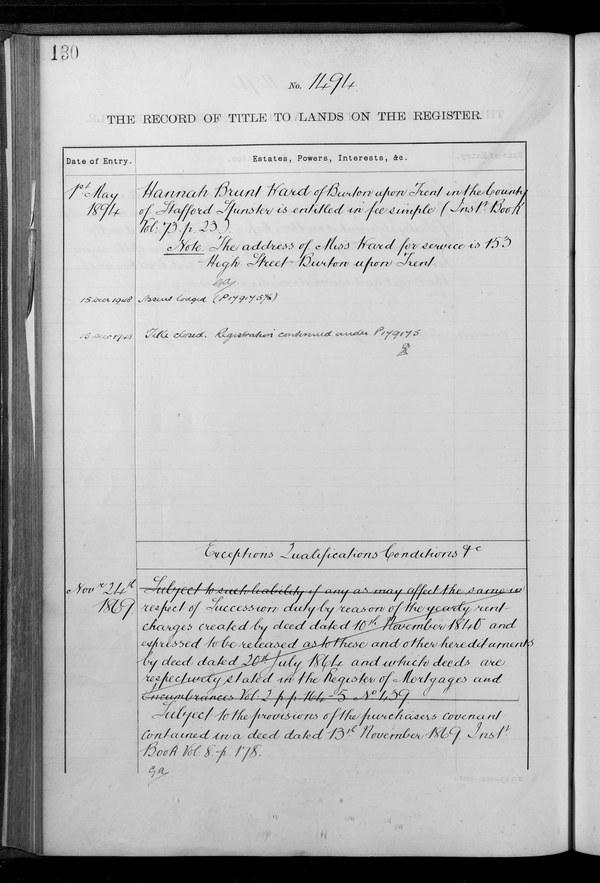 130
No. 1494.
THE RECORD OF TITLE TO LANDS ON THE REGISTER.
Date of Entry.
Estates, Powers, Interests, &c.
1st May
1894
Hannah Brunt Ward of Burton upon Trent in the County
of Stafford Spinster is entitled in fee simple (Inst. Book
Vol. 73. p. 23.)
Note. The address of Miss Ward for service is 153
High Street Burton upon Trent.
15 Decr 1948
Assent lodged (P179175/48)
15 Decr 1948
Title closed. Registration continued under P179175
Exceptions Qualifications Conditions &c
Novr. 24th
1869
Subject to such liability if any as may affect the same in
respect of Succession duty by reason of the yearly rent
charges created by deed dated 10th November 1840 and
expressed to be released as to these and other hereditaments
by deed dated 20th July 1864 and which deeds are
respectively stated in the Register of Mortgages and
Encumbrances Vol. 2 p p. 164-5 No. 439
Subject to the provisions of the purchasers covenant
contained in a deed dated 13th November 1869 Inst.
Book Vol. 8. p. 178.